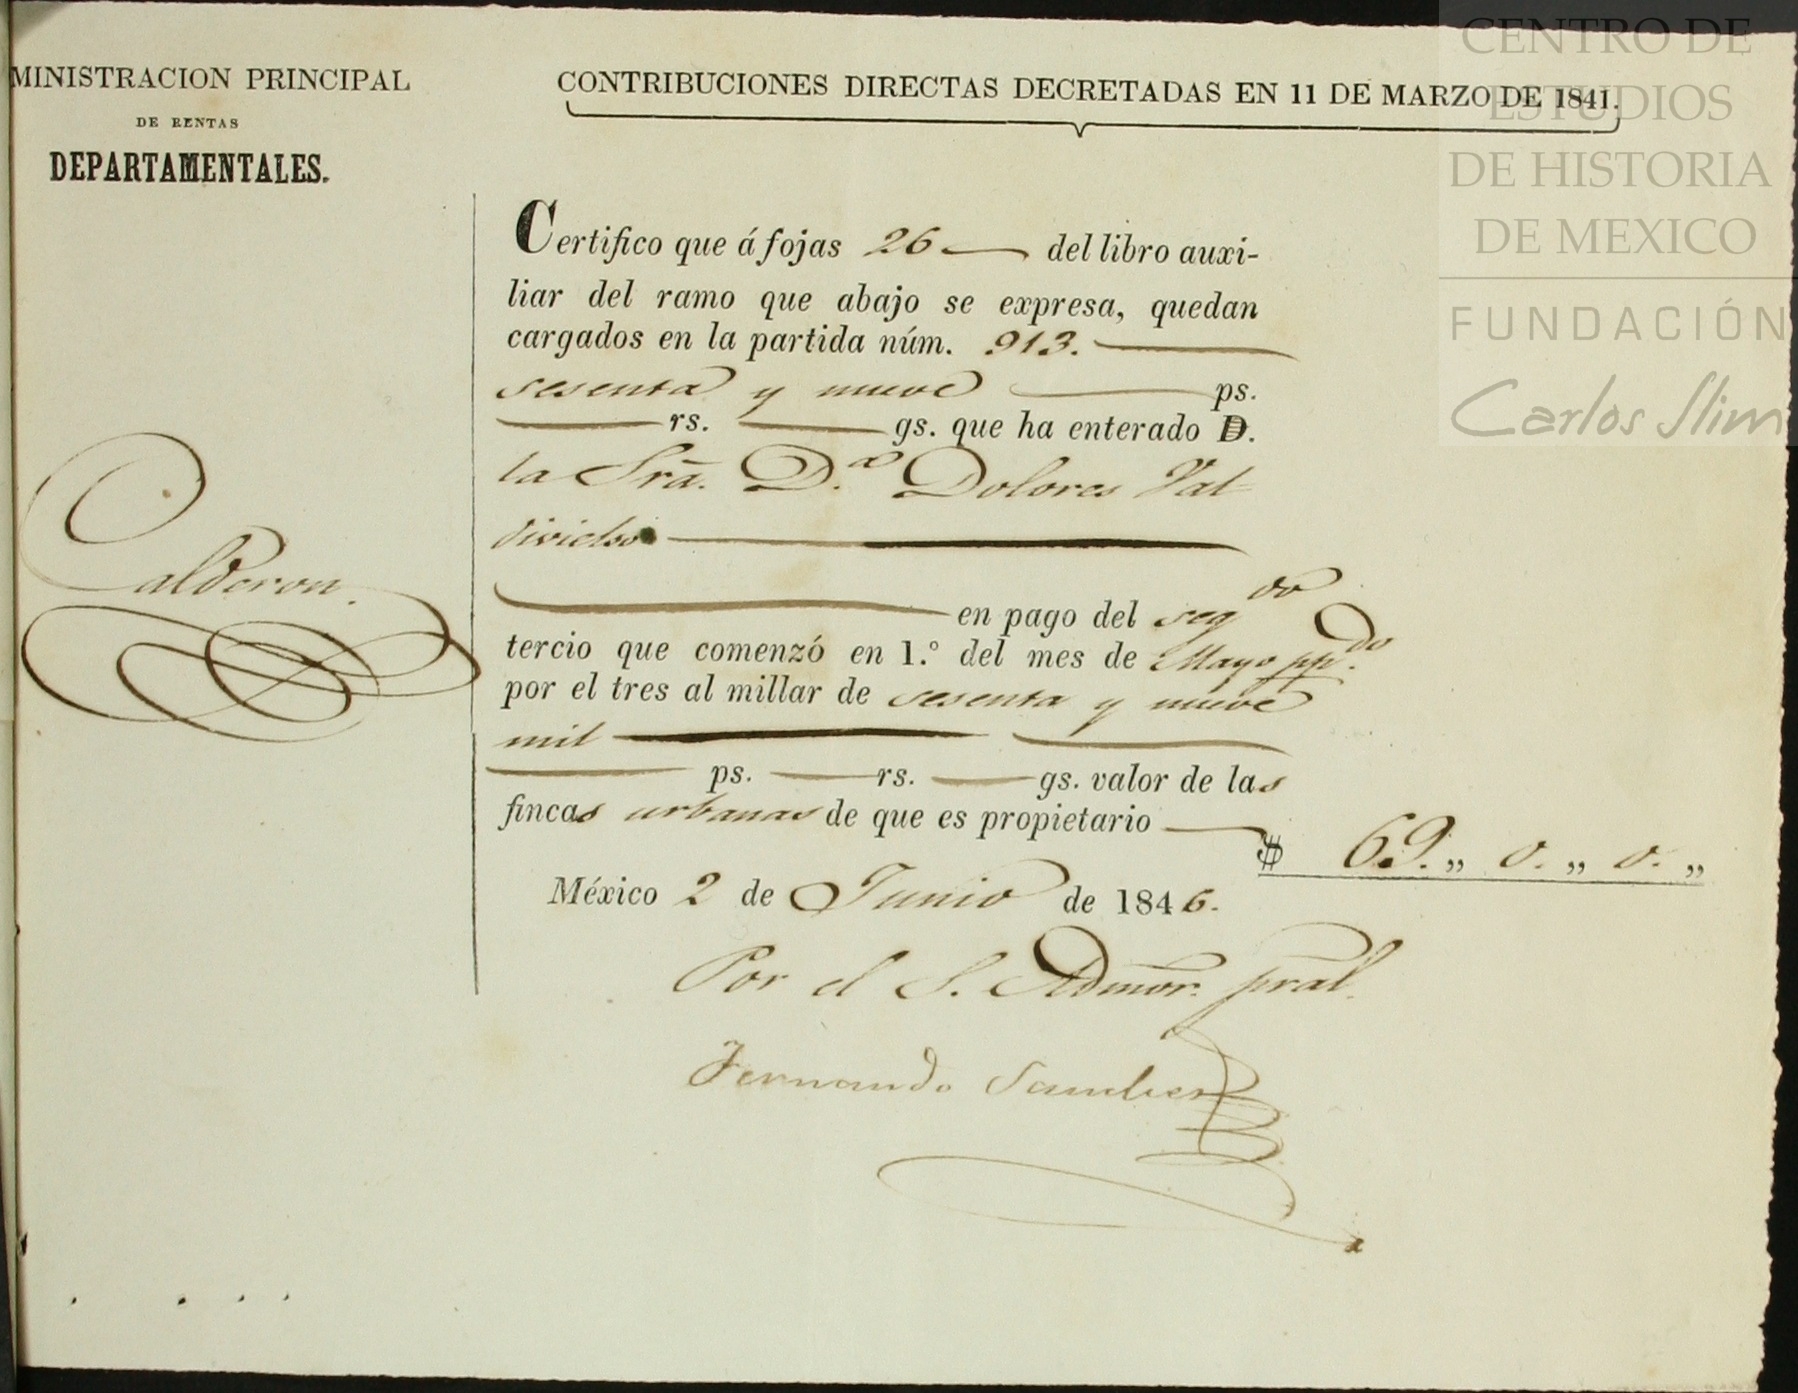 MINISTRACION PRINCIPAL
DE RENTAS
DEPARTAMENTALES.
CONTRIBUCIONES DIRECTAS DECRETADAS EN 11 DE MARZO DE 1841.
Certifico que á fojas 26 — del libro auxi-
liar del ramo que abajo se expresa, quedan
cargados en la partida núm. 913. —
sesenta y nueve — ps.
— rs. — gs. que ha enterado D.
la Sra. D.ª Dolores Val
divielso —
— en pago del seg.do
tercio que comenzó en 1.º del mes de Mayo pp.do
por el tres al millar de sesenta y nueve
mil —
— ps. — rs. — gs. valor de las
fincas urbanas de que es propietario —
$ 69.,, 0.,, 0.,,
México 2 de Junio de 1846.
Por el S. Admor. pral.
Fernando
Calderon.
CENTRO DE
ESTUDIOS
DE HISTORIA
DE MEXICO
FUNDACIÓN
Carlos Slim